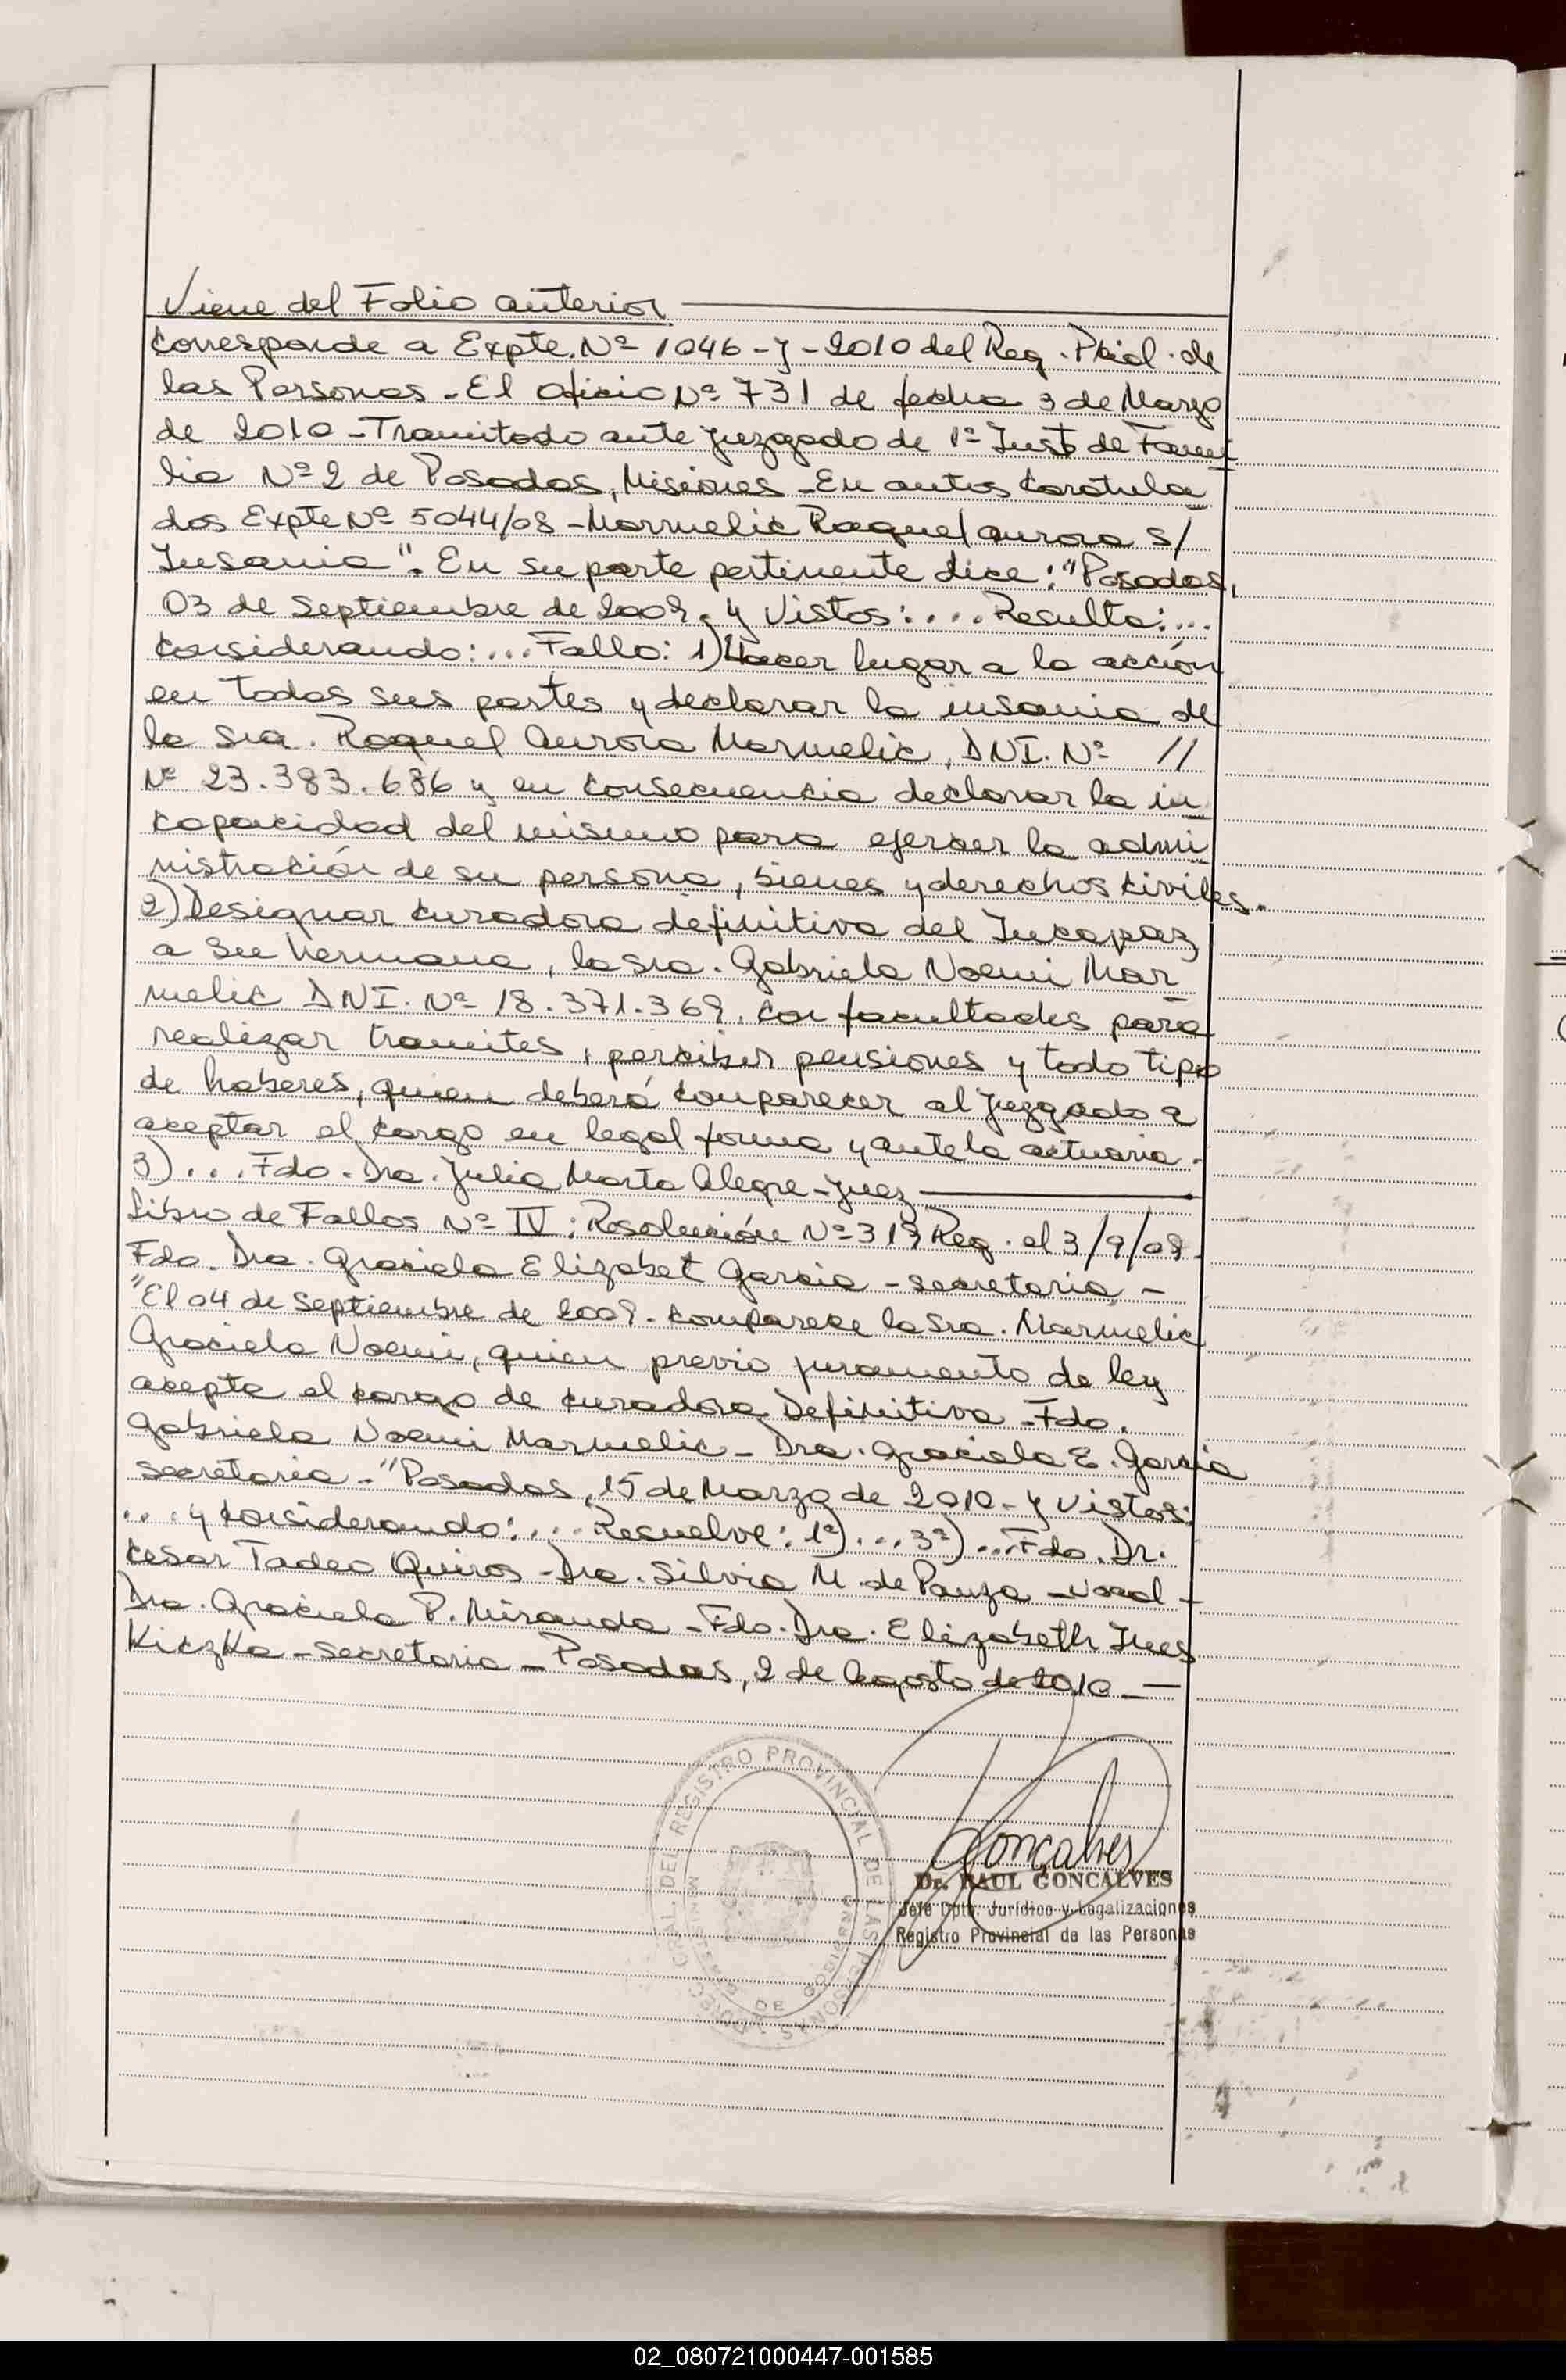 Viene del Folio anterior
Corresponde a Expte. Nº 1046-Y-2010 del Reg. Pcial. de
las Personas - El oficio Nº 731 de fecha 3 de Marzo
de 2010 - Tramitado ante juzgado de 1ª Inst. de Fami
lia Nº 2 de Posadas, Misiones - En autos Caratula
dos Expte Nº 5044/08 - Marmelic Raquel aurora s/
Insania". En su parte pertinente dice: "Posadas,
03 de Septiembre de 2009. y Vistos: ... Resulta: ...
Considerando: ... Fallo: 1) Hacer lugar a la acción
en todas sus partes y declarar la insania de
la Sra. Raquel Aurora Marmelic, DNI. Nº //
Nº 23.383.686 y en consecuencia declarar la in
capacidad del mismo para ejercer la admi
nistración de su persona, bienes y derechos civiles.
2) Designar curadora definitiva del Incapaz
a su hermana, la Sra. Gabriela Noemi Mar
melic DNI. Nº 18.371.369. con facultades para
realizar tramites, percibir pensiones y todo tipo
de haberes, quien deberá comparecer al juzgado a
aceptar el cargo en legal forma y ante la actuaria.
3) ... Fdo. Dra. Julia Marta Alegre - Juez
Libro de Fallos Nº IV: Resolución Nº 319 Reg. el 3/9/09.
Fdo. Dra. Graciela Elizabet Garcia - secretaria -
"El 04 de septiembre de 2009. comparece la Sra. Marmelic
Graciela Noemi, quien previo juramento de ley
acepta el cargo de curadora Definitiva - Fdo.
Gabriela Noemi Marmelic - Dra. Graciela E. Garcia
secretaria - "Posadas, 15 de Marzo de 2010 - y vistos:
... y considerando: ... Resuelve: 1º) ... 3º) ... Fdo. Dr.
Cesar Tadeo Quiros - Dra. Silvia M. de Pauza - vocal -
Dra. Graciela P. Miranda - Fdo. Dra. Elizabeth Ines
Kiczka - secretaria - Posadas, 2 de agosto de 2010 -
GRAL. DEL REGISTRO PROVINCIAL DE LAS PERSONAS
DE GOBIERNO
Gonçalves
Dr. RAUL GONCALVES
Jefe Dpto. Jurídico y Legalizaciones
Registro Provincial de las Personas
02_080721000447-001585